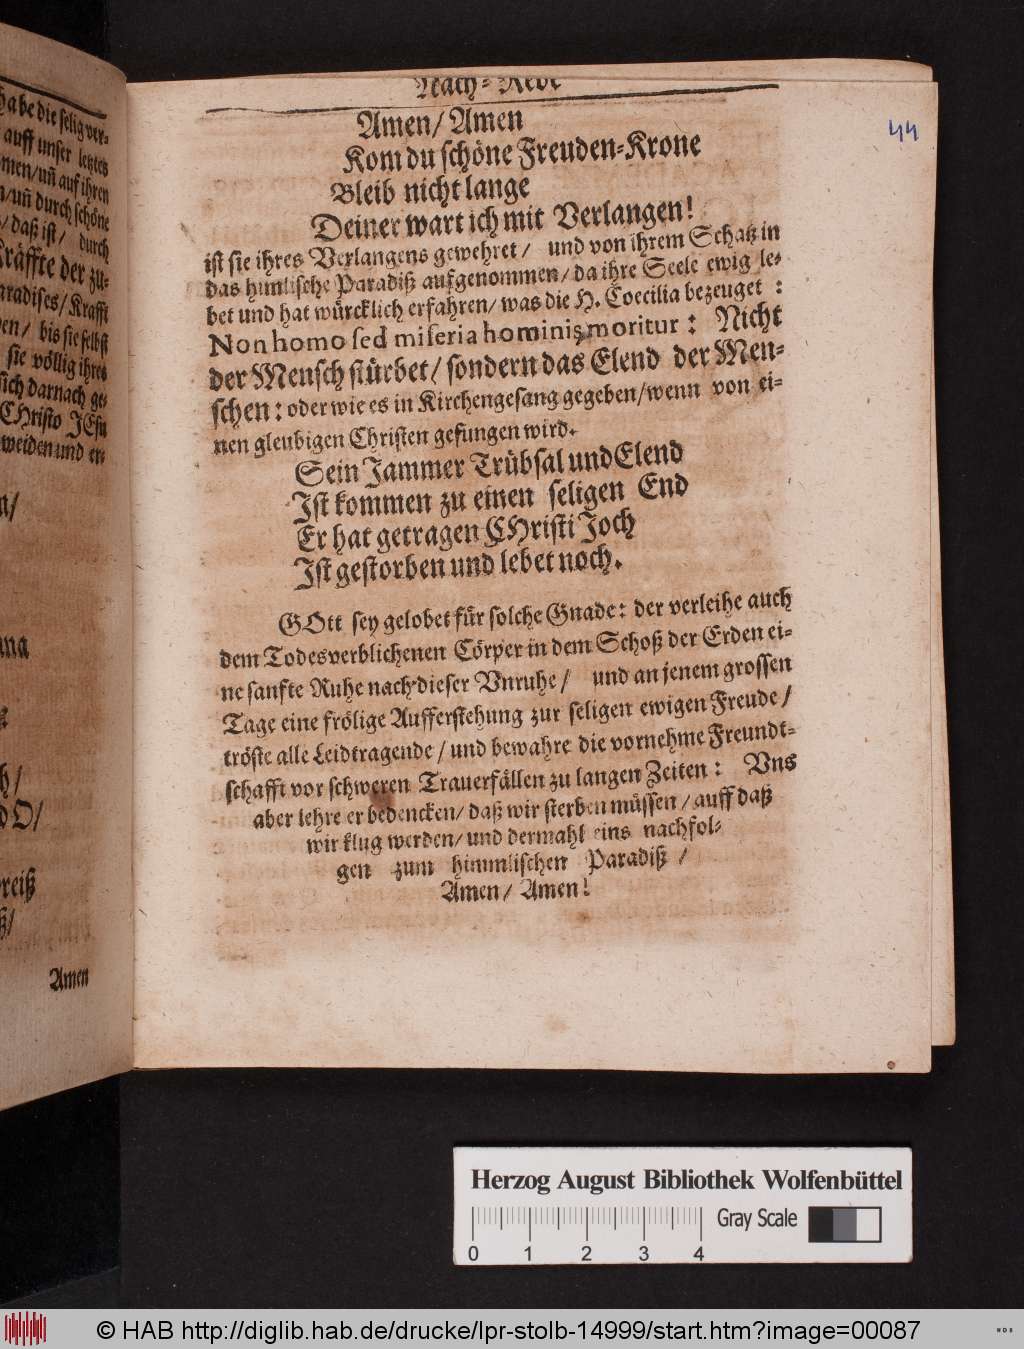 habe die selig ver-
auff unser letztes
men/uñ auf ihren
/uñ durch schöne
/ daß ist / durch
Kräffte der zu-
aradises/ Krafft
en / bis sie selbst
sie völlig ihres
sich darnach ge-
CHristo JEsu
weiden und er-
Amen
Nach-Rede
Amen/ Amen
Kom du schöne Freuden-Krone
Bleib nicht lange
Deiner wart ich mit Verlangen!
ist sie ihres Verlangens gewehret / und von ihrem Schatz in
das himlische Paradiß aufgenommen/ da ihre Seele ewig le-
bet und hat würcklich erfahren/ was die H. Coecilia bezeuget :
Non homo sed miseria hominis moritur : Nicht
der Mensch stürbet/ sondern das Elend der Men-
schen : oder wie es in Kirchengesang gegeben/wenn von ei-
nen gleubigen Christen gesungen wird.
Sein Jammer Trübsal und Elend
Ist kommen zu einen seligen End
Er hat getragen CHristi Joch
Ist gestorben und lebet noch.
GOtt sey gelobet für solche Gnade: der verleihe auch
dem Todesverblichenen Cörper in dem Schoß der Erden ei-
ne sanfte Ruhe nach dieser Vnruhe / und an jenem grossen
Tage eine frölige Aufferstehung zur seligen ewigen Freude /
tröste alle Leidtragende / und bewahre die vornehme Freundt-
schafft vor schweren Trauerfällen zu langen Zeiten : Vns
aber lehre er bedencken/ daß wir sterben müssen / auff daß
wir klug werden/ und dermahl eins nachfol-
gen zum himmlischen Paradiß /
Amen/ Amen!
44
Herzog August Bibliothek Wolfenbüttel
Gray Scale
0 1 2 3 4
© HAB http://diglib.hab.de/drucke/lpr-stolb-14999/start.htm?image=00087